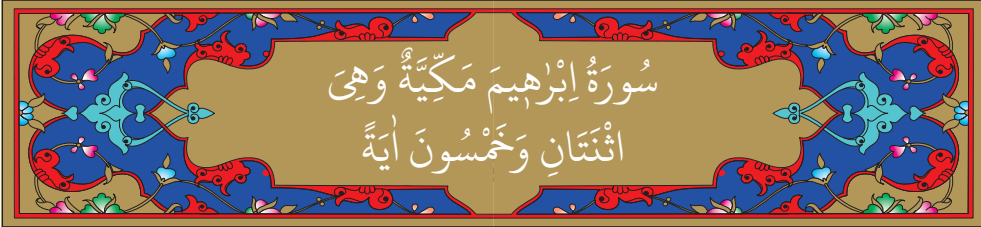 سُورَةُ اِبْرٰهٖيمَ مَكِّيَّةٌ وَهِىَ
اثْنَتَانِ وَخَمْسُونَ اٰيَةً